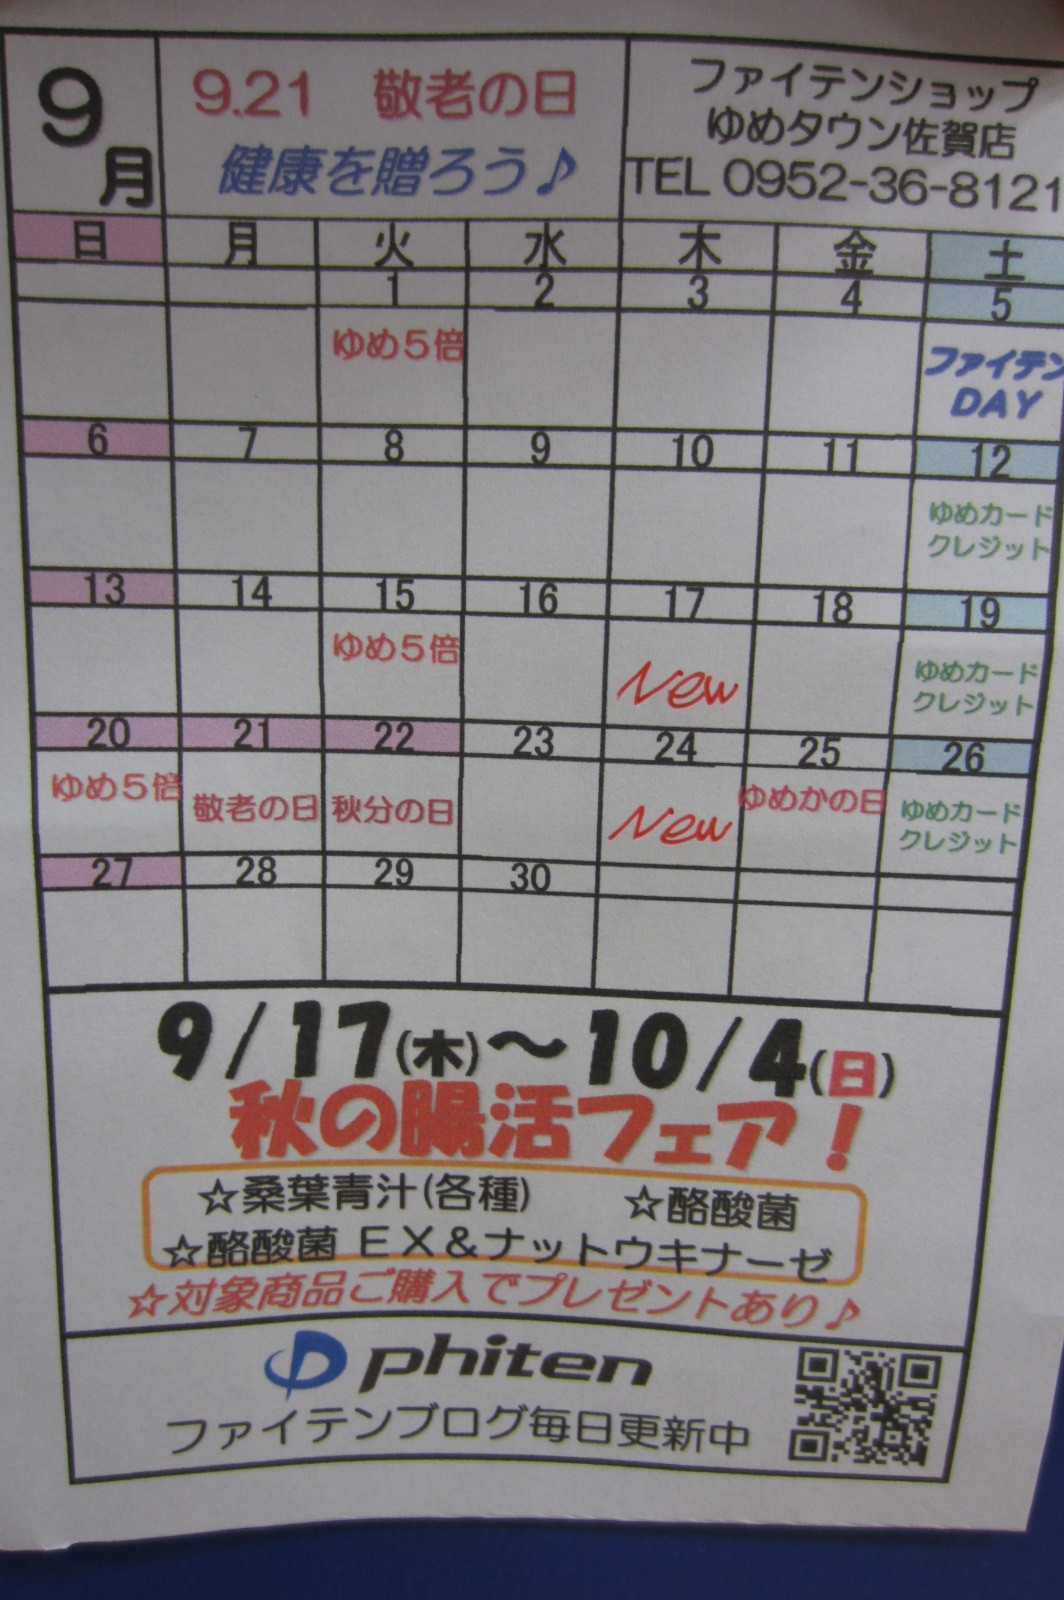 9月
9.21 敬老の日
健康を贈ろう♪
ファイテンショップ
ゆめタウン佐賀店
TEL 0952-36-8121
日 月 火 水 木 金 土
1 2 3 4 5
ゆめ5倍
ファイテン
DAY
6 7 8 9 10 11 12
ゆめカード
クレジット
13 14 15 16 17 18 19
ゆめ5倍
New
ゆめカード
クレジット
20 21 22 23 24 25 26
ゆめ5倍
敬老の日
秋分の日
New
ゆめかの日
ゆめカード
クレジット
27 28 29 30
9/17(木)～10/4(日)
秋の腸活フェア！
☆桑葉青汁(各種) ☆酪酸菌
☆酪酸菌 EX＆ナットウキナーゼ
☆対象商品ご購入でプレゼントあり♪
phiten
ファイテンブログ毎日更新中